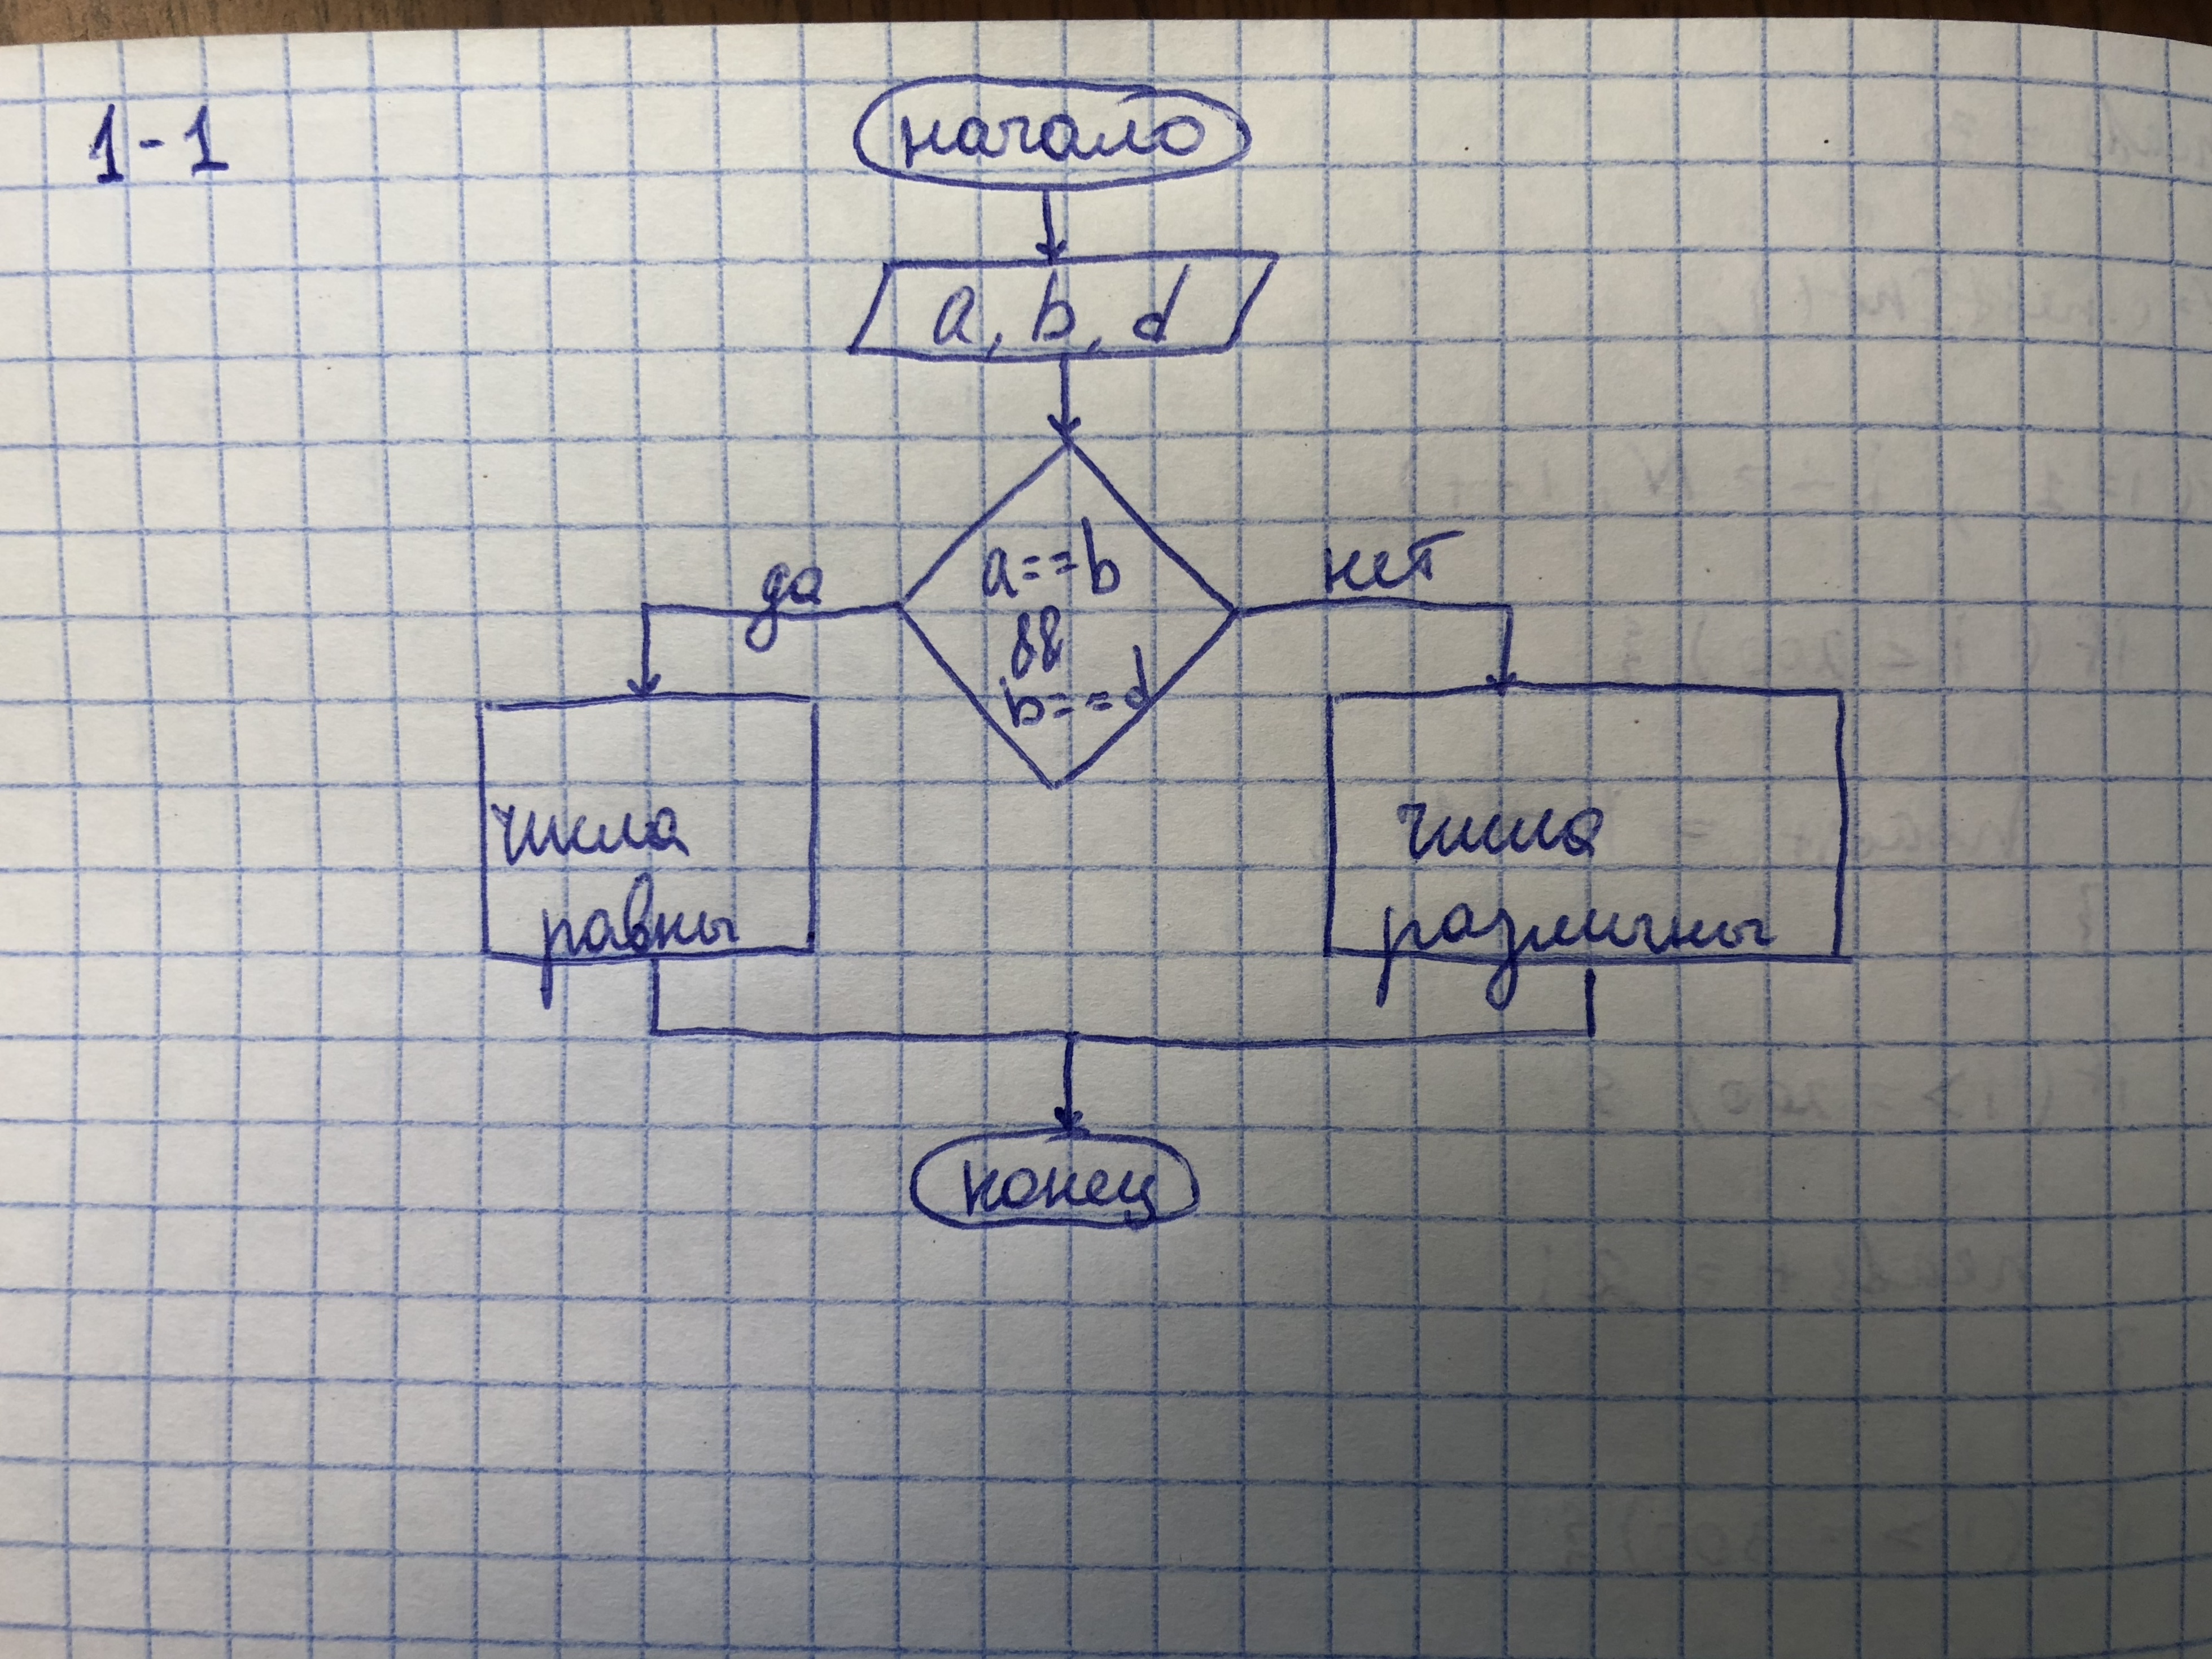 1-1
начало
a, b, d
a==b
&&
b==d
да
нет
числа
равны
числа
различны
конец